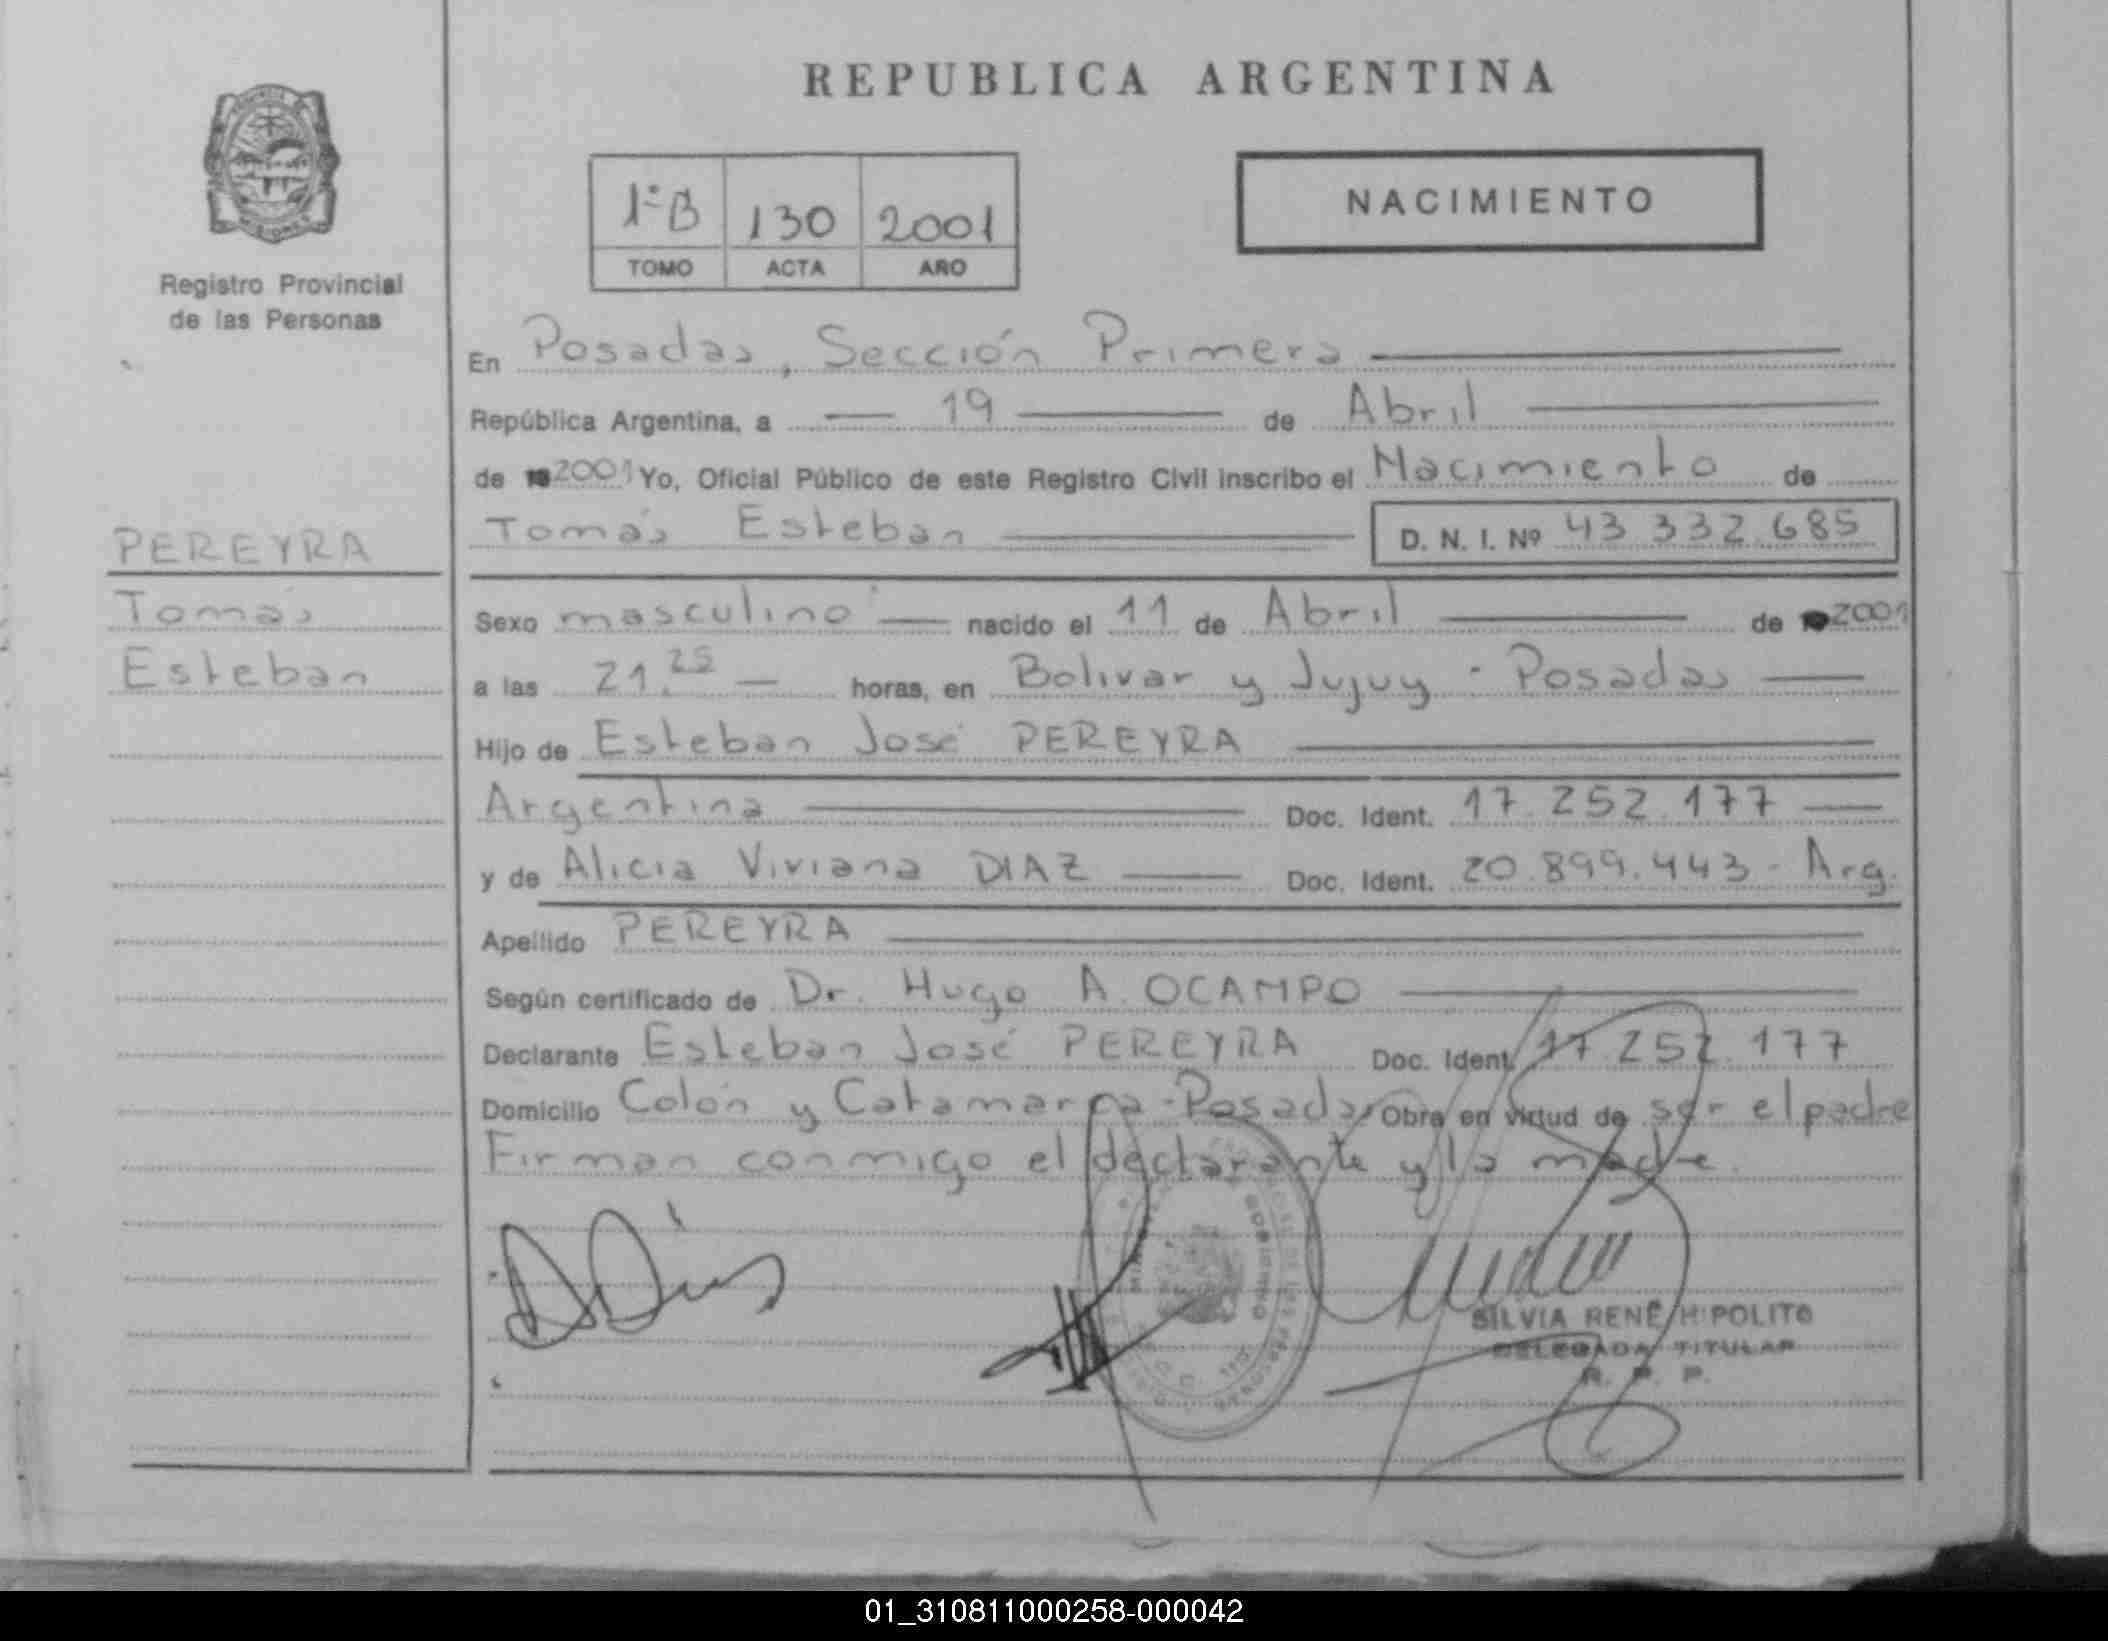 REPUBLICA ARGENTINA
Registro Provincial
de las Personas
1ºB 130 2001
TOMO ACTA AÑO
NACIMIENTO
En Posadas, Sección Primera
República Argentina, a 19 de Abril
de 2001 Yo, Oficial Público de este Registro Civil inscribo el Nacimiento de
Tomás Esteban D. N. I. Nº 43 332.685
PEREYRA
Tomás
Esteban
Sexo masculino nacido el 11 de Abril de 2001
a las 21.25 horas, en Bolivar y Jujuy - Posadas
Hijo de Esteban José PEREYRA
Argentina Doc. Ident. 17.252.177
y de Alicia Viviana DIAZ Doc. Ident. 20.899.443 - Arg.
Apellido PEREYRA
Según certificado de Dr. Hugo A. OCAMPO
Declarante Esteban José PEREYRA Doc. Ident. 17.252.177
Domicilio Colón y Catamarca - Posadas Obra en virtud de ser el padre
Firman conmigo el declarante y la madre.
SILVIA RENÉ HIPOLITO
DELEGADA TITULAR
R. P. P.
01_310811000258-000042